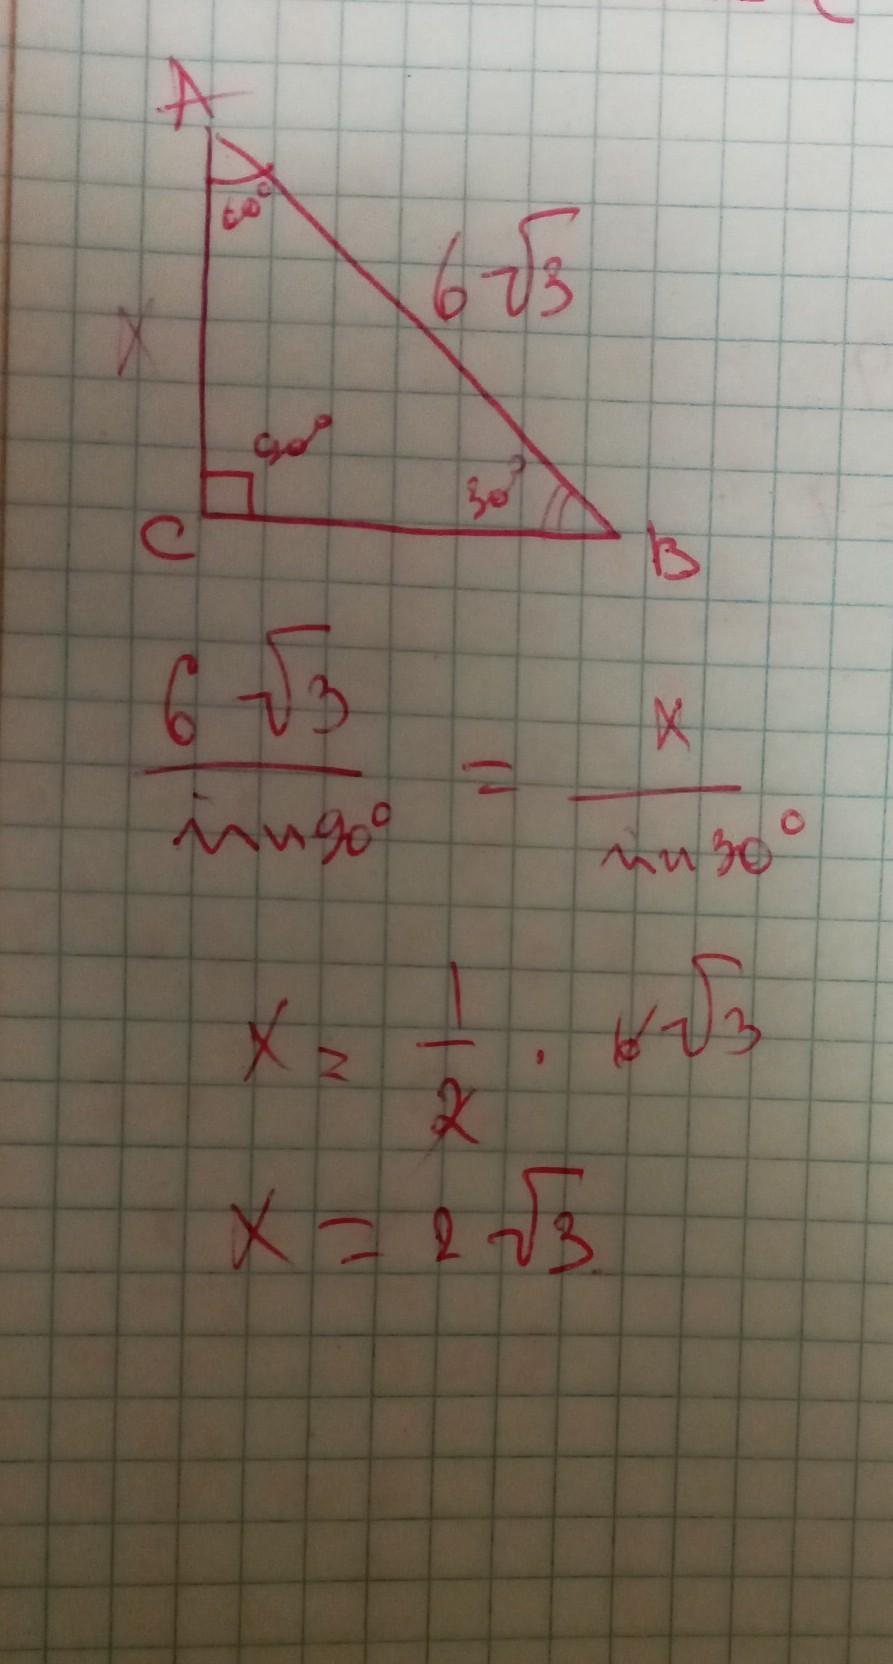 A
60°
6√3
X
90°
30°
C
B
6√3 / sin90° = X / sin30°
X = 1/2 · 6√3
X = 2√3